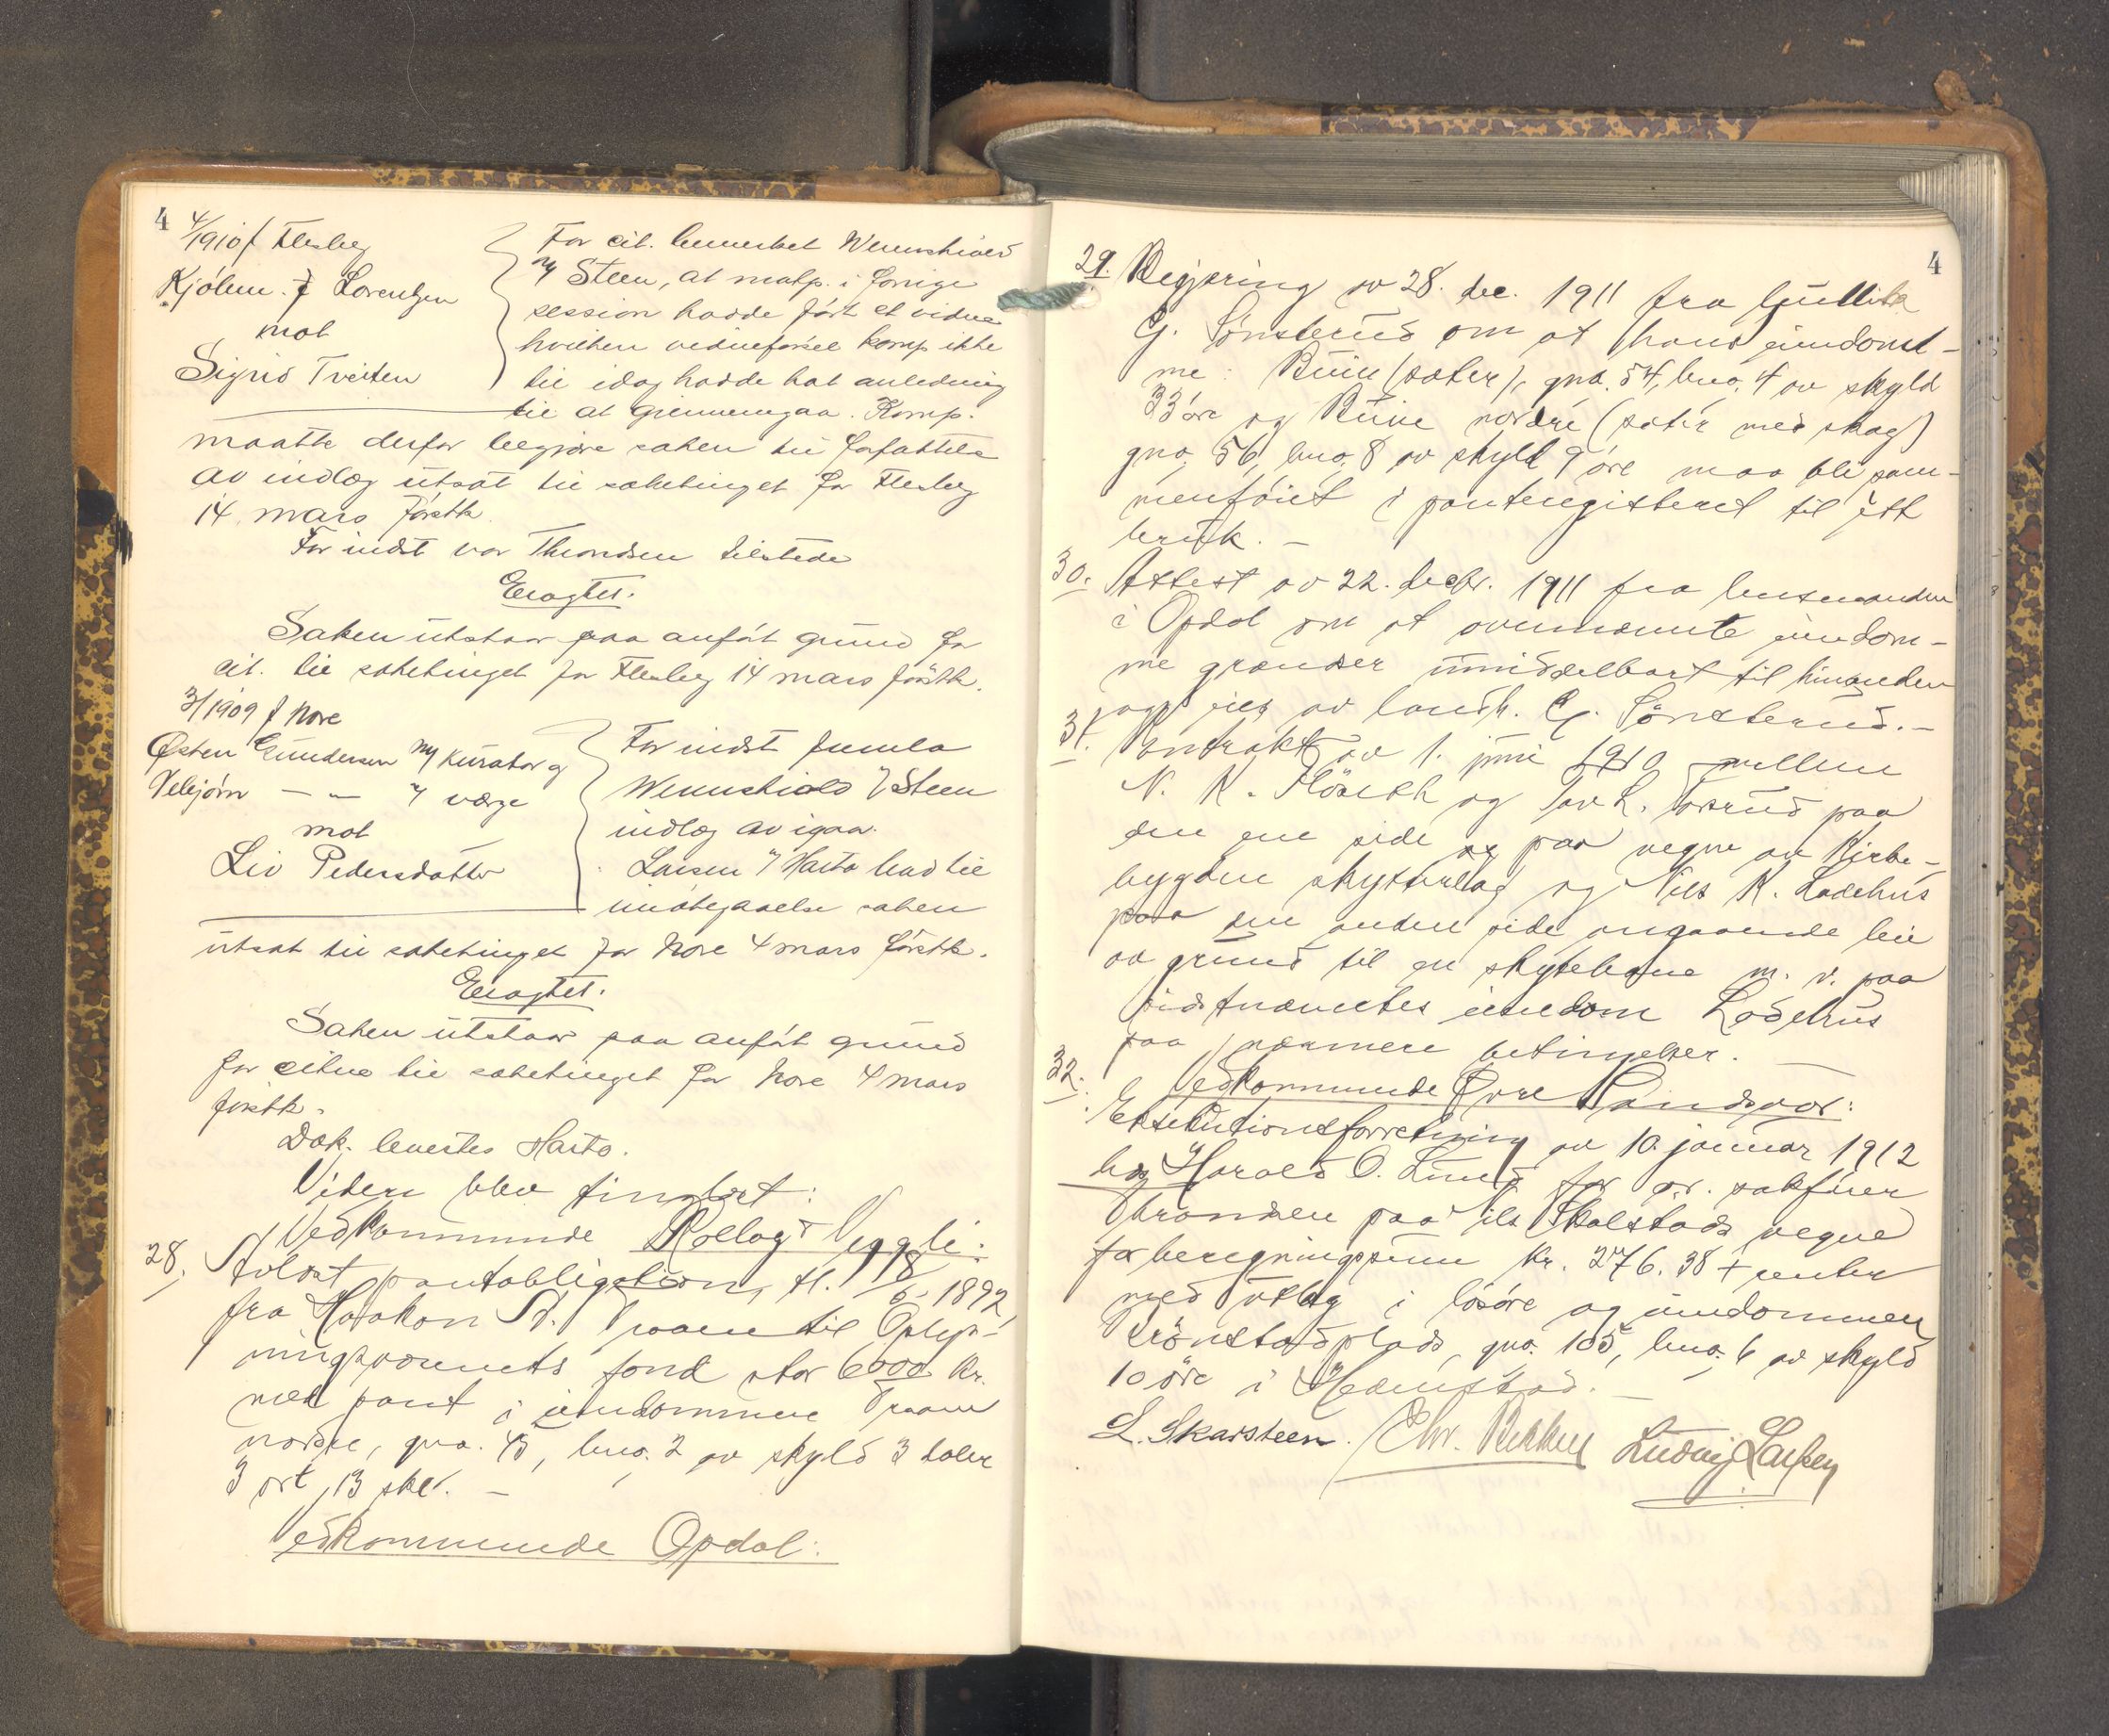 4
4/1910 f Flesberg
Kjölein. f Lorentzen
mot
Sigrid Tveiten
For cit. bemerket Wennskiold
f Steen, at motp. i forrige
session hadde fört et vidne
hvilken vidneförsel komp ikke
til idag hadde hat anledning
til at gjennemgaa. Komp.
maatte derfor begjære saken til forfattelse
av indlæg utsat til saketinget for Flesberg
14 mars förstk.
For indst var Throndsen tilstede
Eragtet.
Saken utstaar paa anfört grund for
cit. til saketinget for Flesberg 14 mars förstk.
3/1909 f Nore
Østen Gundersen m/ kurator og
Vebjörn — " — m/ værge
mot
Liv Pedersdatter
For indst fremla
Wennskiold f Steen
indlæg av igaar.
Larsen f Hasto bad til
imötegaaelse saken
utsat til saketinget for Nore 4 mars förstk.
Eragtet.
Saken utstaar paa anfört grund
for citne til saketinget for Nore 4 mars
förstk.
Dok. levertes Hasto.
Videre blev tinglæst:
Vedkommende Rollag & Veggli:
28. Avlöst pantobligation, tl. 18/6 1892,
fra Haakon St. Traaen til Oplys-
ningsvæsenets fond stor 6000 kr.
med pant i eiendommen Traaen
nordre, gno. 45, bno. 2 av skyld 3 daler
3 ort 13 skil. —
Vedkommende Opdal:
4
29. Begjæring av 28. dec. 1911 fra Gullik
G. Sönsterud om at hans eiendom-
me: Buin (sæter), gno. 54, bno. 4 av skyld
33 öre og Buine nordre (sæter med skog)
gno. 56, bno. 8 av skyld 9 öre maa bli sam-
menföiet i pantregisteret til ett
bruk. —
30. Attest av 22. decbr. 1911 fra lensmanden
i Opdal om at ovennævnte eiendom-
me grænser umiddelbart til hinanden
og eies av landh. G. Sönsterud. —
31. Kontrakt av 1. juni 1910 mellem
N. K. og Tov L. paa
den ene side og paa vegne av Kirke-
bygden skytterlag og Nils K. Ladehus
paa den anden side angaaende leie
av grund til en skytebane m. v. paa
sidstnævntes eiendom Ladehus
paa nærmere betingelser. —
32. Vedkommende Övre Sandsvær:
Eksekutionsforretning av 10. januar 1912
hos Harald O. Lund for o.r. sakförer
Throndsen paa Nils Skolstads vegne
for beregningssum kr. 276.38 + renter
med utlæg i lösöre og eiendommen
Krönstadplads, gno. 105, bno. 6 av skyld
10 öre i Hedenstad. —
L. Skarsteen. Chr. Bekken Ludvig Larsen